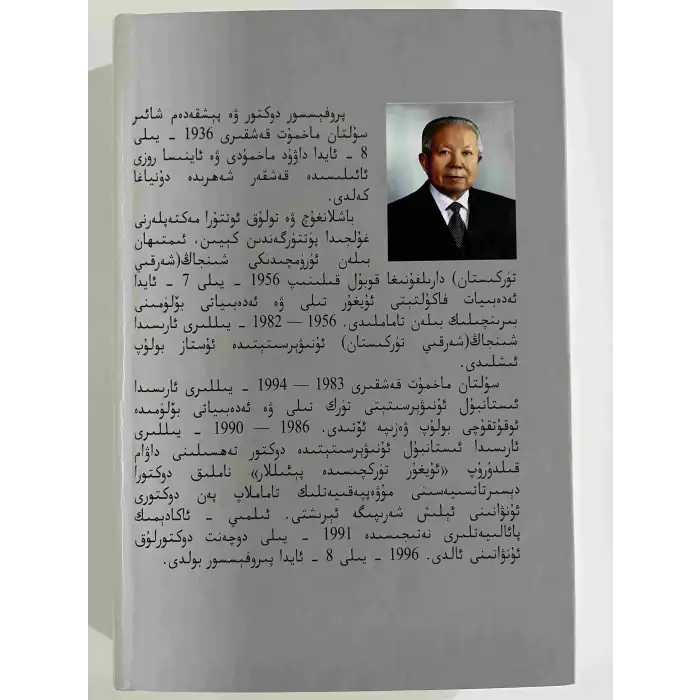 پروفېسسور دوكتور ۋە پېشقەدەم شائىر
سۇلتان ماخمۇت قەشقىرى 1936 ـ يىلى
8 ـ ئايدا داۋۇد ماخمۇدى ۋە ئاينىسا روزى
ئائىلىسىدە قەشقەر شەھرىدە دۇنياغا
كەلدى.
باشلانغۇچ ۋە تولۇق ئوتتۇرا مەكتەپلەرنى
غۇلجىدا پۈتتۈرگەندىن كېيىن، ئىمتىھان
بىلەن ئۈرۈمچىدىكى شىنجاڭ(شەرقىي
تۈركىستان) دارىلفۇنىغا قوبۇل قىلىنىپ 1956 ـ يىلى 7 ـ ئايدا
ئەدەبىيات فاكۇلتېتى ئۇيغۇر تىلى ۋە ئەدەبىياتى بۆلۈمىنى
بىرىنچىلىك بىلەن تاماملىدى. 1956 — 1982 ـ يىللىرى ئارىسىدا
شىنجاڭ(شەرقىي تۈركىستان) ئۇنىۋېرسىتېتىدە ئۇستاز بولۇپ
ئىشلىدى.
سۇلتان ماخمۇت قەشقىرى 1983 — 1994 ـ يىللىرى ئارىسىدا
ئىستانبۇل ئۇنىۋېرسىتېتى تۈرك تىلى ۋە ئەدەبىياتى بۆلۈمىدە
ئوقۇتقۇچى بولۇپ ۋەزىپە ئۆتىدى. 1986 — 1990 ـ يىللىرى
ئارىسىدا ئىستانبۇل ئۇنىۋېرسىتېتىدە دوكتور تەھسىلىنى داۋام
قىلدۇرۇپ «ئۇيغۇر تۈركچىسىدە پېئىللار» ناملىق دوكتورا
دىسېرتاتسىيەسىنى مۇۋەپپەقىيەتلىك تاماملاپ پەن دوكتورى
ئۇنۋانىنى ئېلىش شەرىپىگە ئېرىشتى. ئىلمىي ـ ئاكادېمىك
پائالىيەتلىرى نەتىجىسىدە 1991 ـ يىلى دوچەنت دوكتورلۇق
ئۇنۋانىنى ئالدى. 1996 ـ يىلى 8 ـ ئايدا پىروفېسسور بولدى.